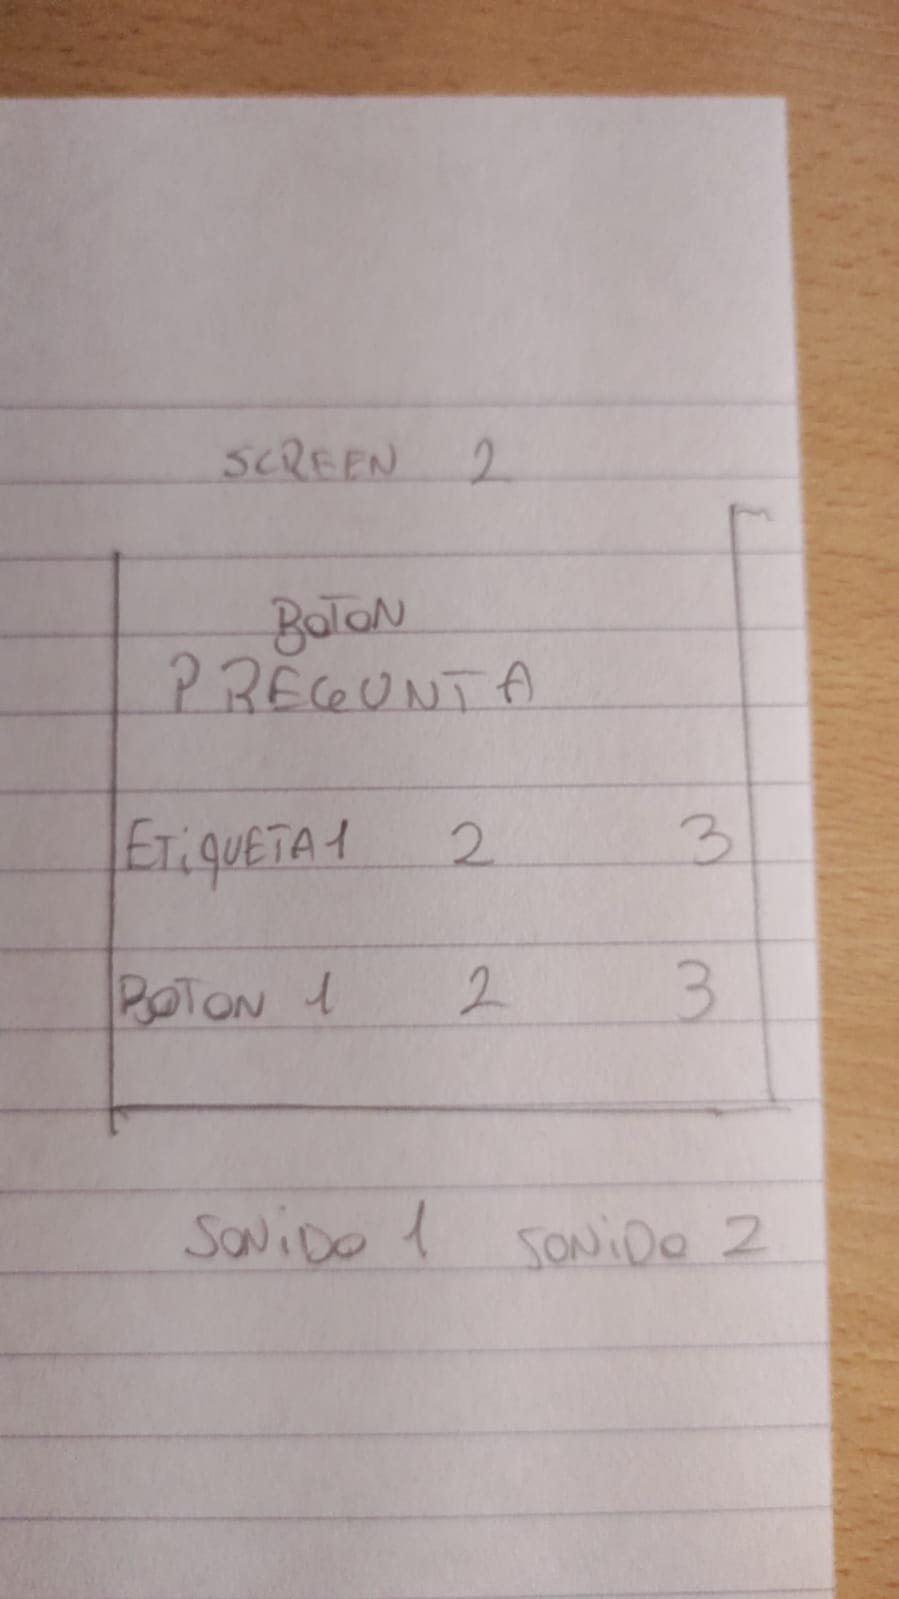 SCREEN 2
BOTON
PREGUNTA
ETiQUETA1 2 3
BOTON 1 2 3
SONiDO 1 SONiDO 2